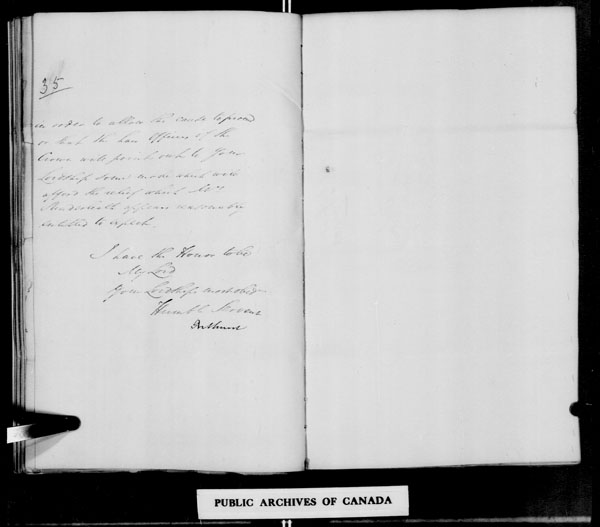 35
in order to allow the cause to proceed
or that the Law Officers of the
Crown will point out to Your
Lordship some mode which will
afford the relief which Mrs
appears reasonably
entitled to expect.
I have the Honor to be
My Lord
Your Lordships most obedt
Humble Servant
Bathurst
PUBLIC ARCHIVES OF CANADA